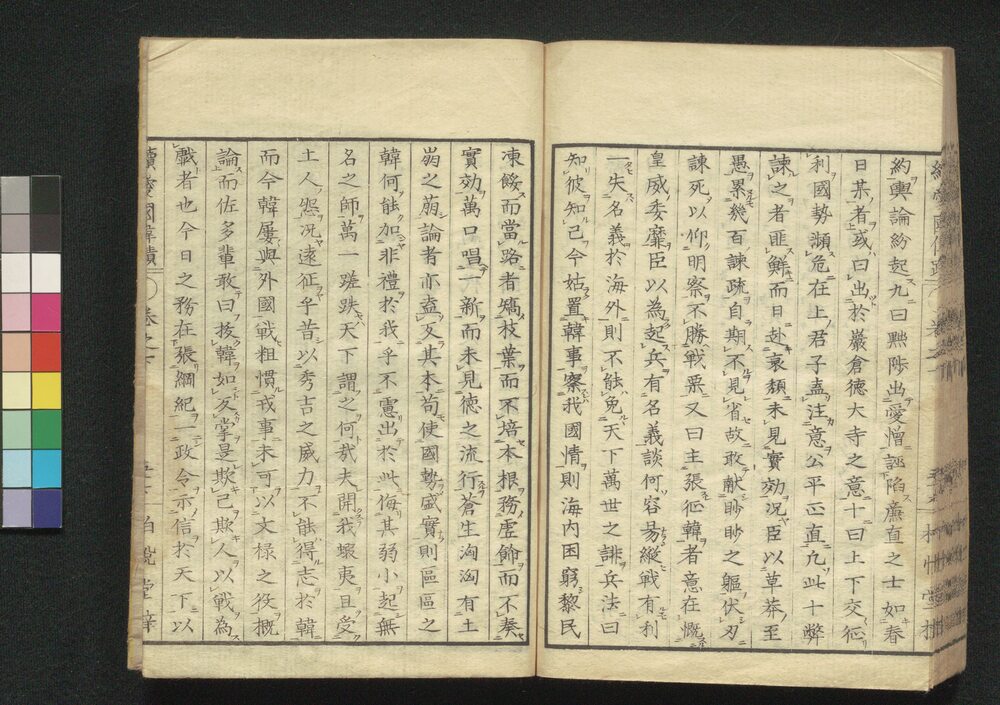 約輿論紛起九曰黜陟出愛憎誣陷廉直之士如春
日某者或曰出於巖倉德大寺之意十曰上下交征
利國勢瀕危在上君子盍注意公平正直凡此十弊
諫之者匪鮮而日赴衰頹未見實効况臣以草莽至
愚累幾百諫疏自期不見省故敢献眇眇之軀伏刃
諫死以仰明察不勝戰栗又曰主張征韓者意在慨
皇威委靡臣以為起兵有名義談何容易縱戰有利
一失名義於海外則不能免天下萬世之誹兵法曰
知彼知己今姑置韓事察我國情則海内困窮黎民
凍餒而當路者矯枝葉而不培本根務虛飾而不奏
實効萬口唱一新而未見德之流行蒼生洶洶有土
崩之萠論者亦盍反其本苟使國勢盛實則區區之
韓何能加非禮於我乎不慮出於此侮其弱小起無
名之師萬一蹉跌天下謂之何哉夫開我蝦夷且受
土人怨况遠征乎昔以秀吉之威力不能得志於韓
而今韓屢與外國戰粗慣戎事未可以文禄之役概
論而佐多輩敢曰拔韓如反掌是欺己欺人以戰為
戲者也今日之務在張綱紀一政令示信於天下以